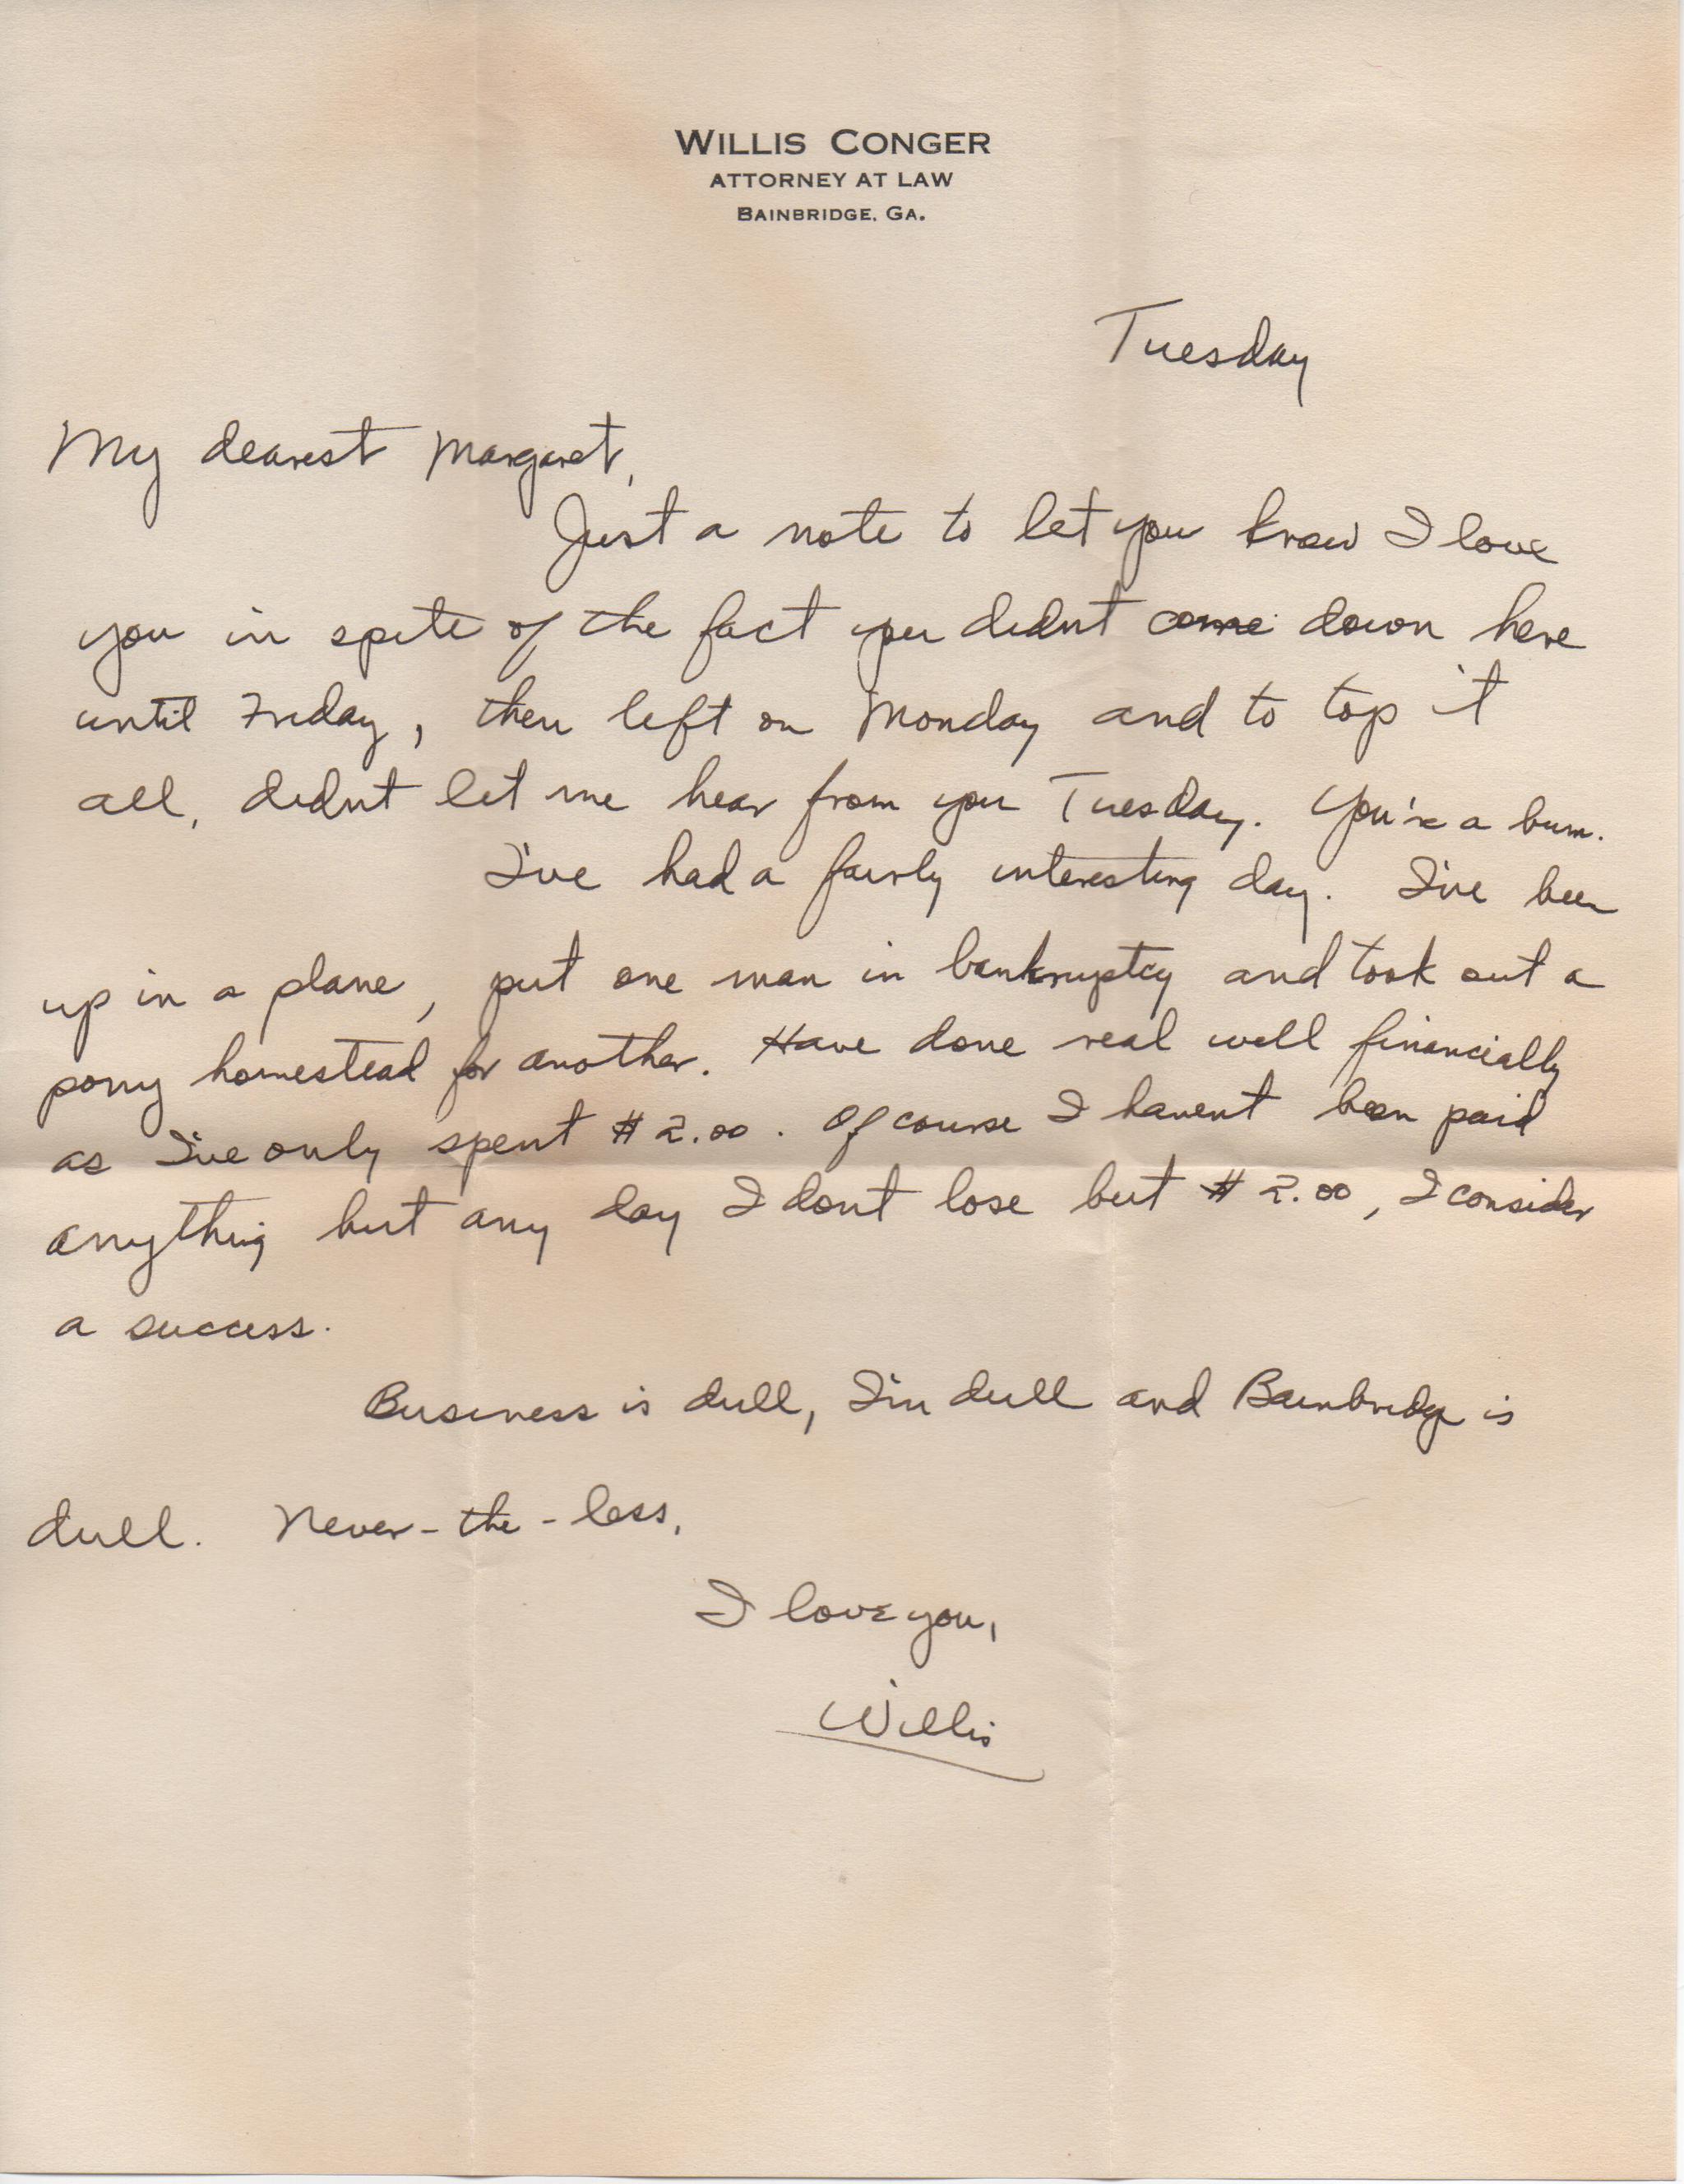 WILLIS CONGER
ATTORNEY AT LAW
BAINBRIDGE, GA.
Tuesday
My dearest Margaret,
Just a note to let you know I love
you in spite of the fact you didnt come down here
until Friday, then left on Monday and to top it
all, didnt let me hear from you Tuesday. You're a bum.
I've had a fairly interesting day. I've been
up in a plane, put one man in bankruptcy and took out a
pony homestead for another. Have done real well financially
as I've only spent $2.00. Of course I havent been paid
anything but any day I dont lose but $2.00, I consider
a success.
Business is dull, I'm dull and Bainbridge is
dull. Never-the-less,
I love you,
Willis